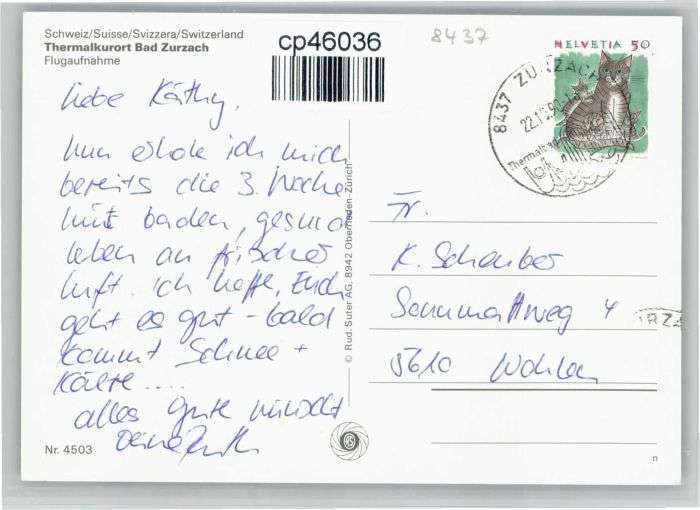 Schweiz/Suisse/Svizzera/Switzerland
Thermalkurort Bad Zurzach
Flugaufnahme
cp46036
8437
HELVETIA 50
8437 ZURZACH
Thermalbad
liebe Käthy,
nun erhole ich mich
bereits die 3. Woche
mit baden, gesund
leben an frischer
luft. ich hoffe, Euch
geht es gut - bald
kommt Schnee +
Kälte ....
alles gute wünscht
Deine
Fr.
K. Schreiber
4
5610 Wohlen
© Rud. Suter AG, 8942 Oberrieden-Zürich
Nr. 4503
n